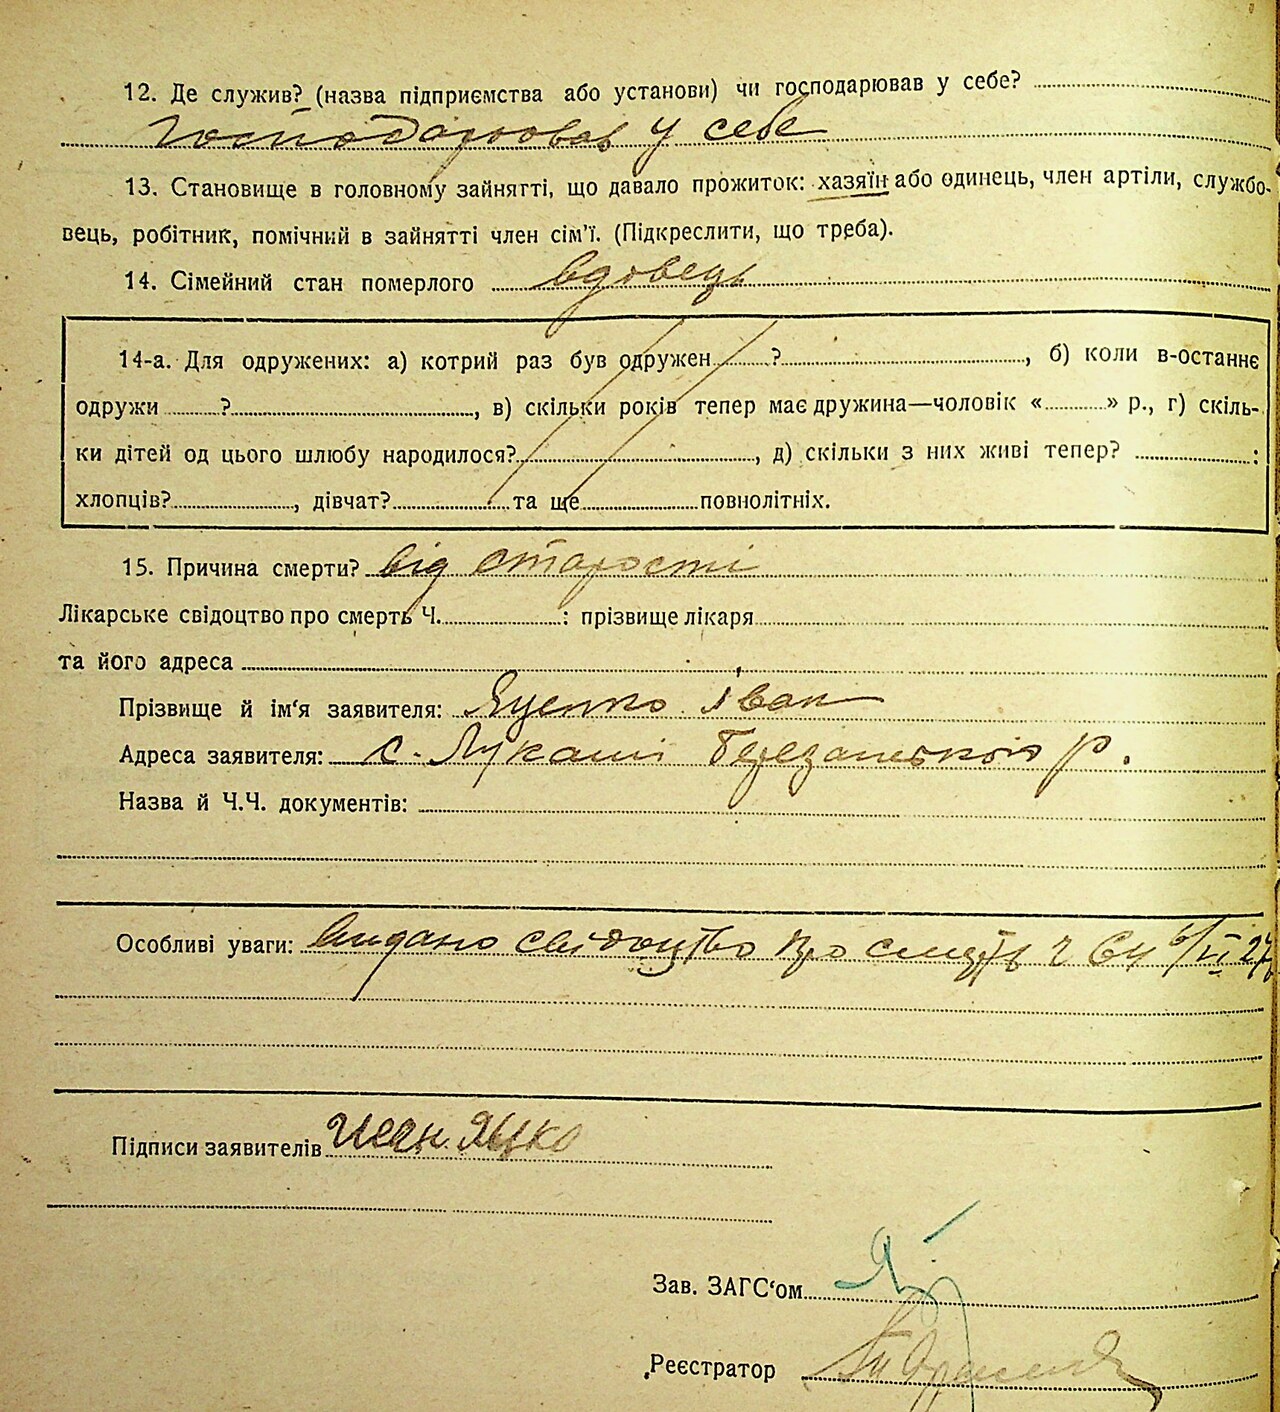 12. Де служив? (назва підприємства або установи) чи господарював у себе?
господарював у себе
13. Становище в головному зайнятті, що давало прожиток: хазяїн або одинець, член артілі, службо-
вець, робітник, помічний в зайнятті член сім'ї. (Підкреслити, що треба).
14. Сімейний стан померлого вдовець
14-а. Для одружених: а) котрий раз був одружен ? , б) коли в-останнє
одружи ? , в) скільки років тепер має дружина—чоловік « » р., г) скіль-
ки дітей од цього шлюбу народилося? , д) скільки з них живі тепер? :
хлопців? , дівчат? та ще повнолітніх.
15. Причина смерти? від старости
Лікарське свідоцтво про смерть Ч. : прізвище лікаря
та його адреса
Прізвище й ім'я заявителя: Яценко Іван
Адреса заявителя: с. Лукаші Березанського р.
Назва й Ч.Ч. документів:
Особливі уваги: видано свідоцтво про смерть Ч 64 6/VI 27
Підписи заявителів Иван Яцко
Зав. ЗАГС'ом
Реєстратор